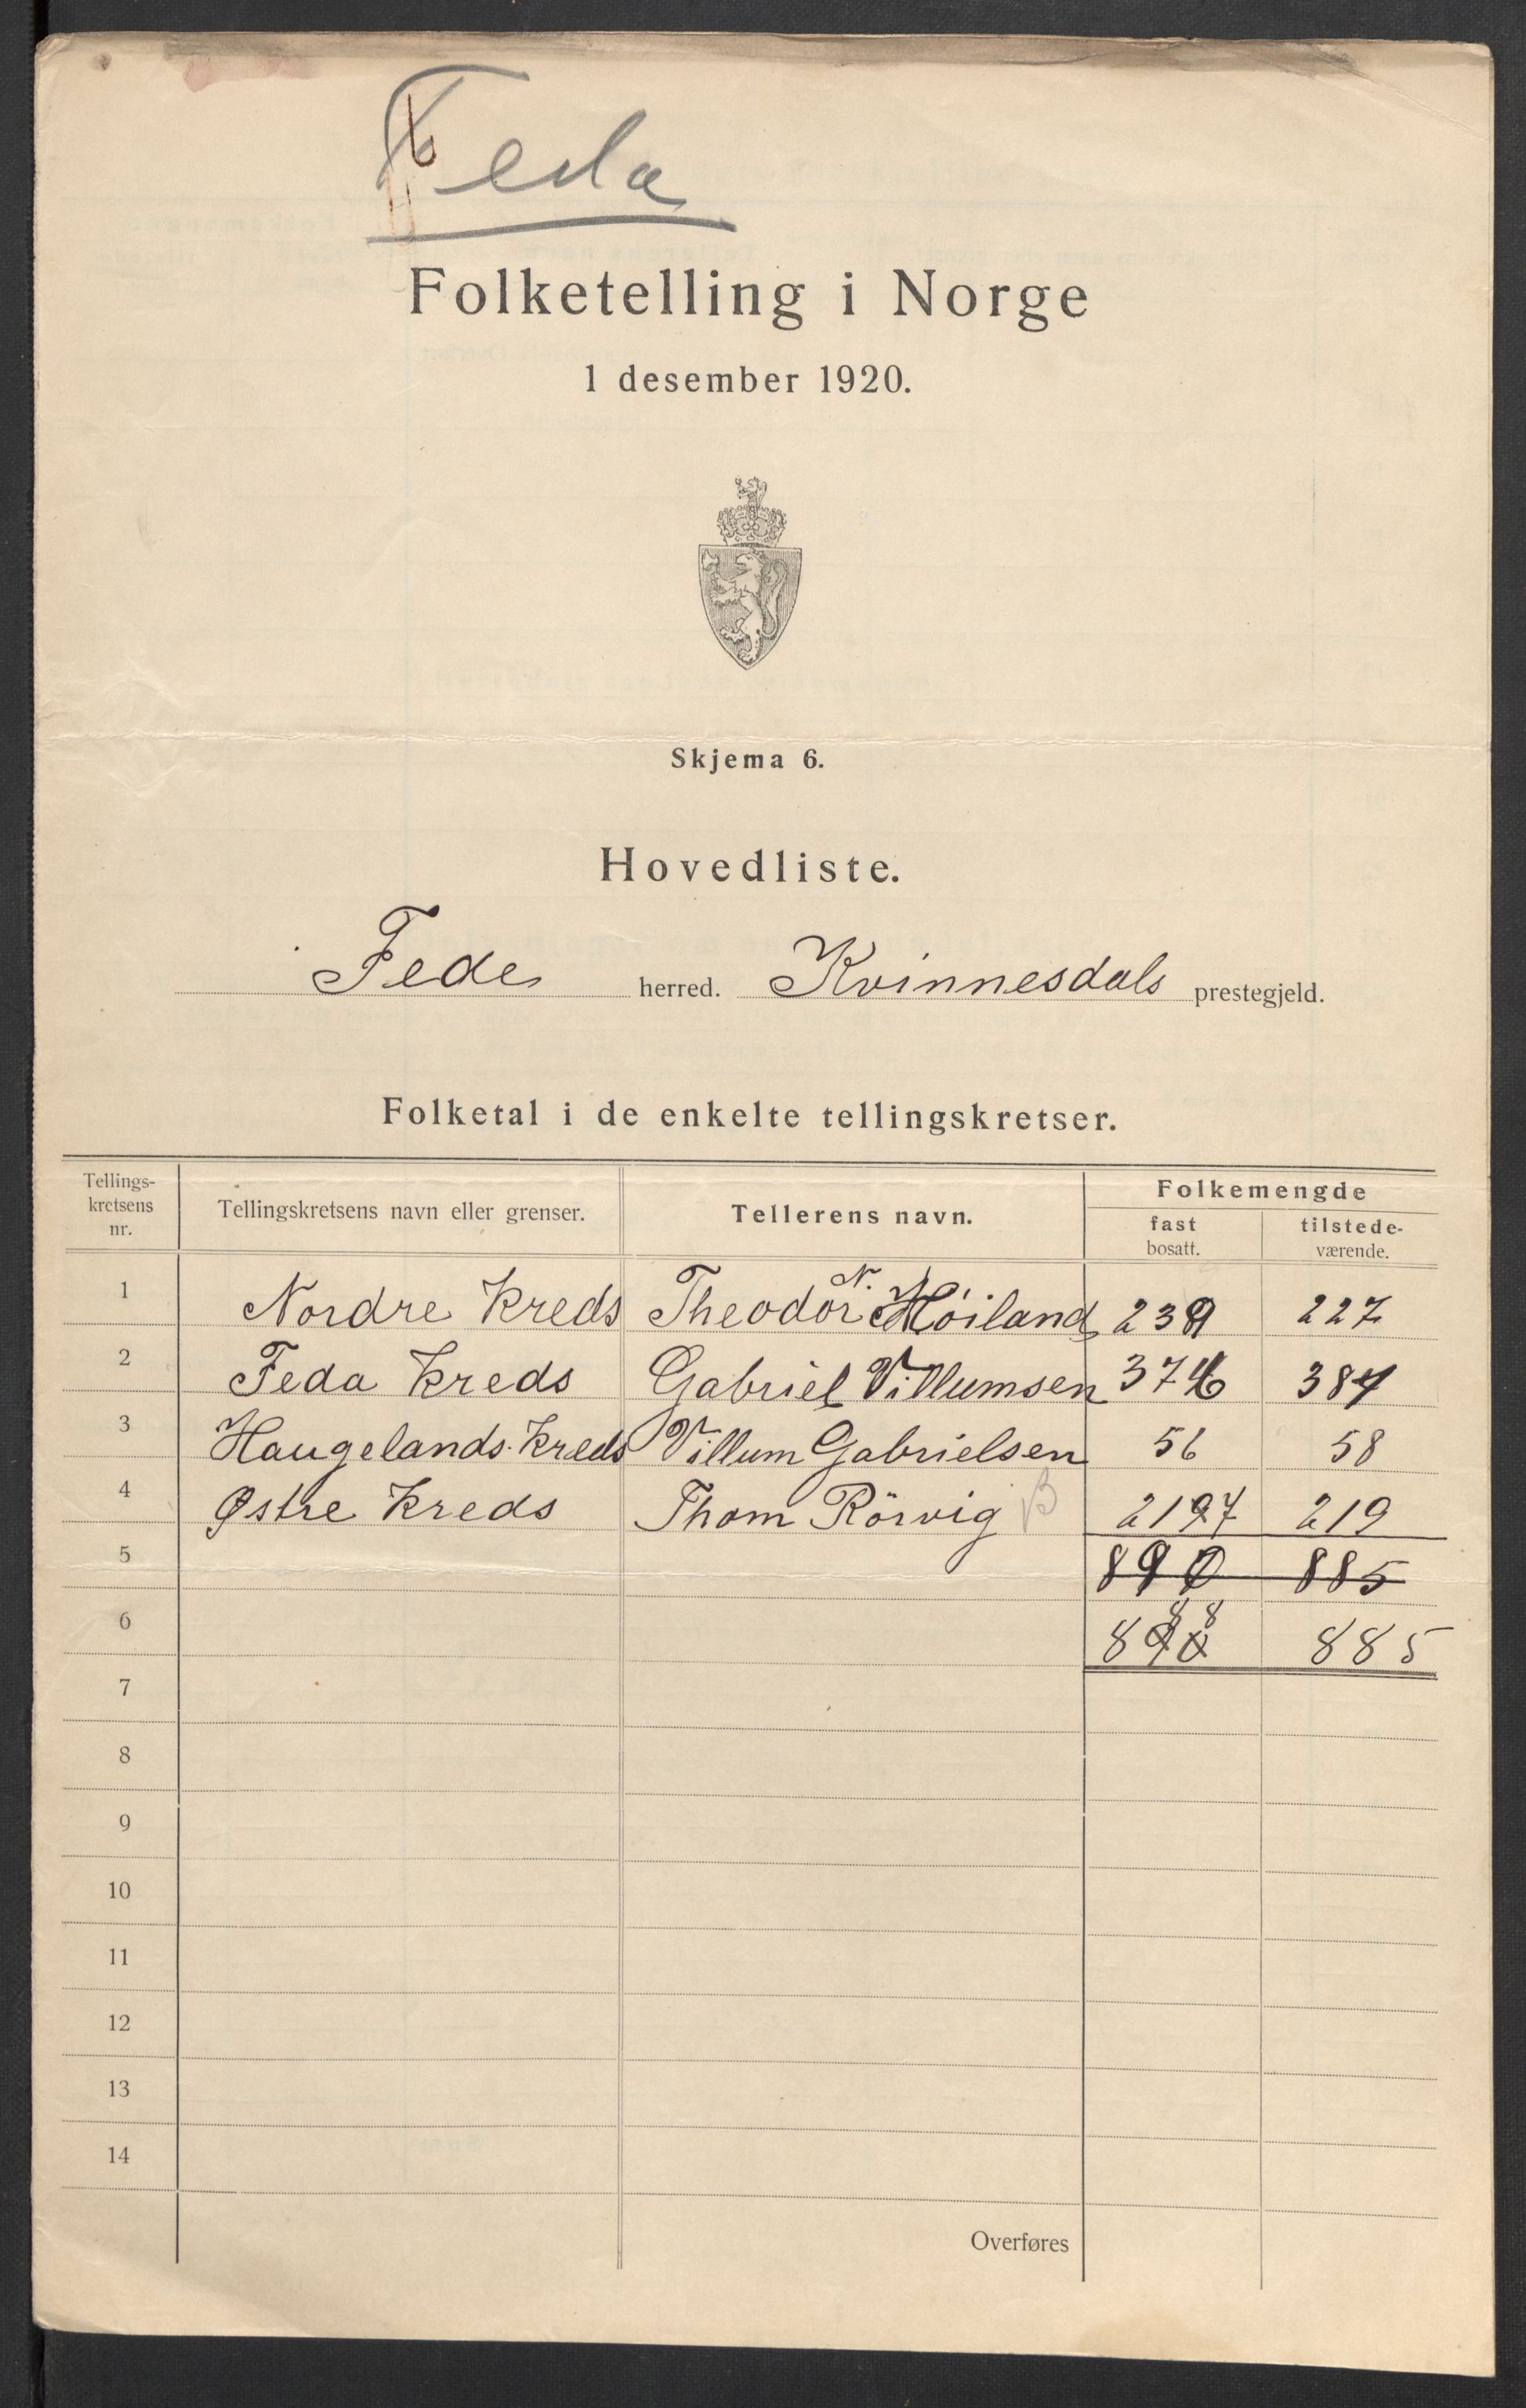 Feda
Folketelling i Norge
1 desember 1920.
Skjema 6.
Hovedliste.
Feda herred. Kvinnesdals prestegjeld.
Folketal i de enkelte tellingskretser.
Tellings-
kretsens
nr.
Tellingskretsens navn eller grenser.
Tellerens navn.
Folkemengde
fast
bosatt.
tilstede-
værende.
1 Nordre Kreds Theodor N. Höiland 239 227
2 Feda Kreds Gabriel Villumsen 376 384
3 Haugelands Kreds Villum Gabrielsen 56 58
4 Østre Kreds Thom Rörvig 217 219
5 890 885
6 888 885
7
8
9
10
11
12
13
14
Overføres